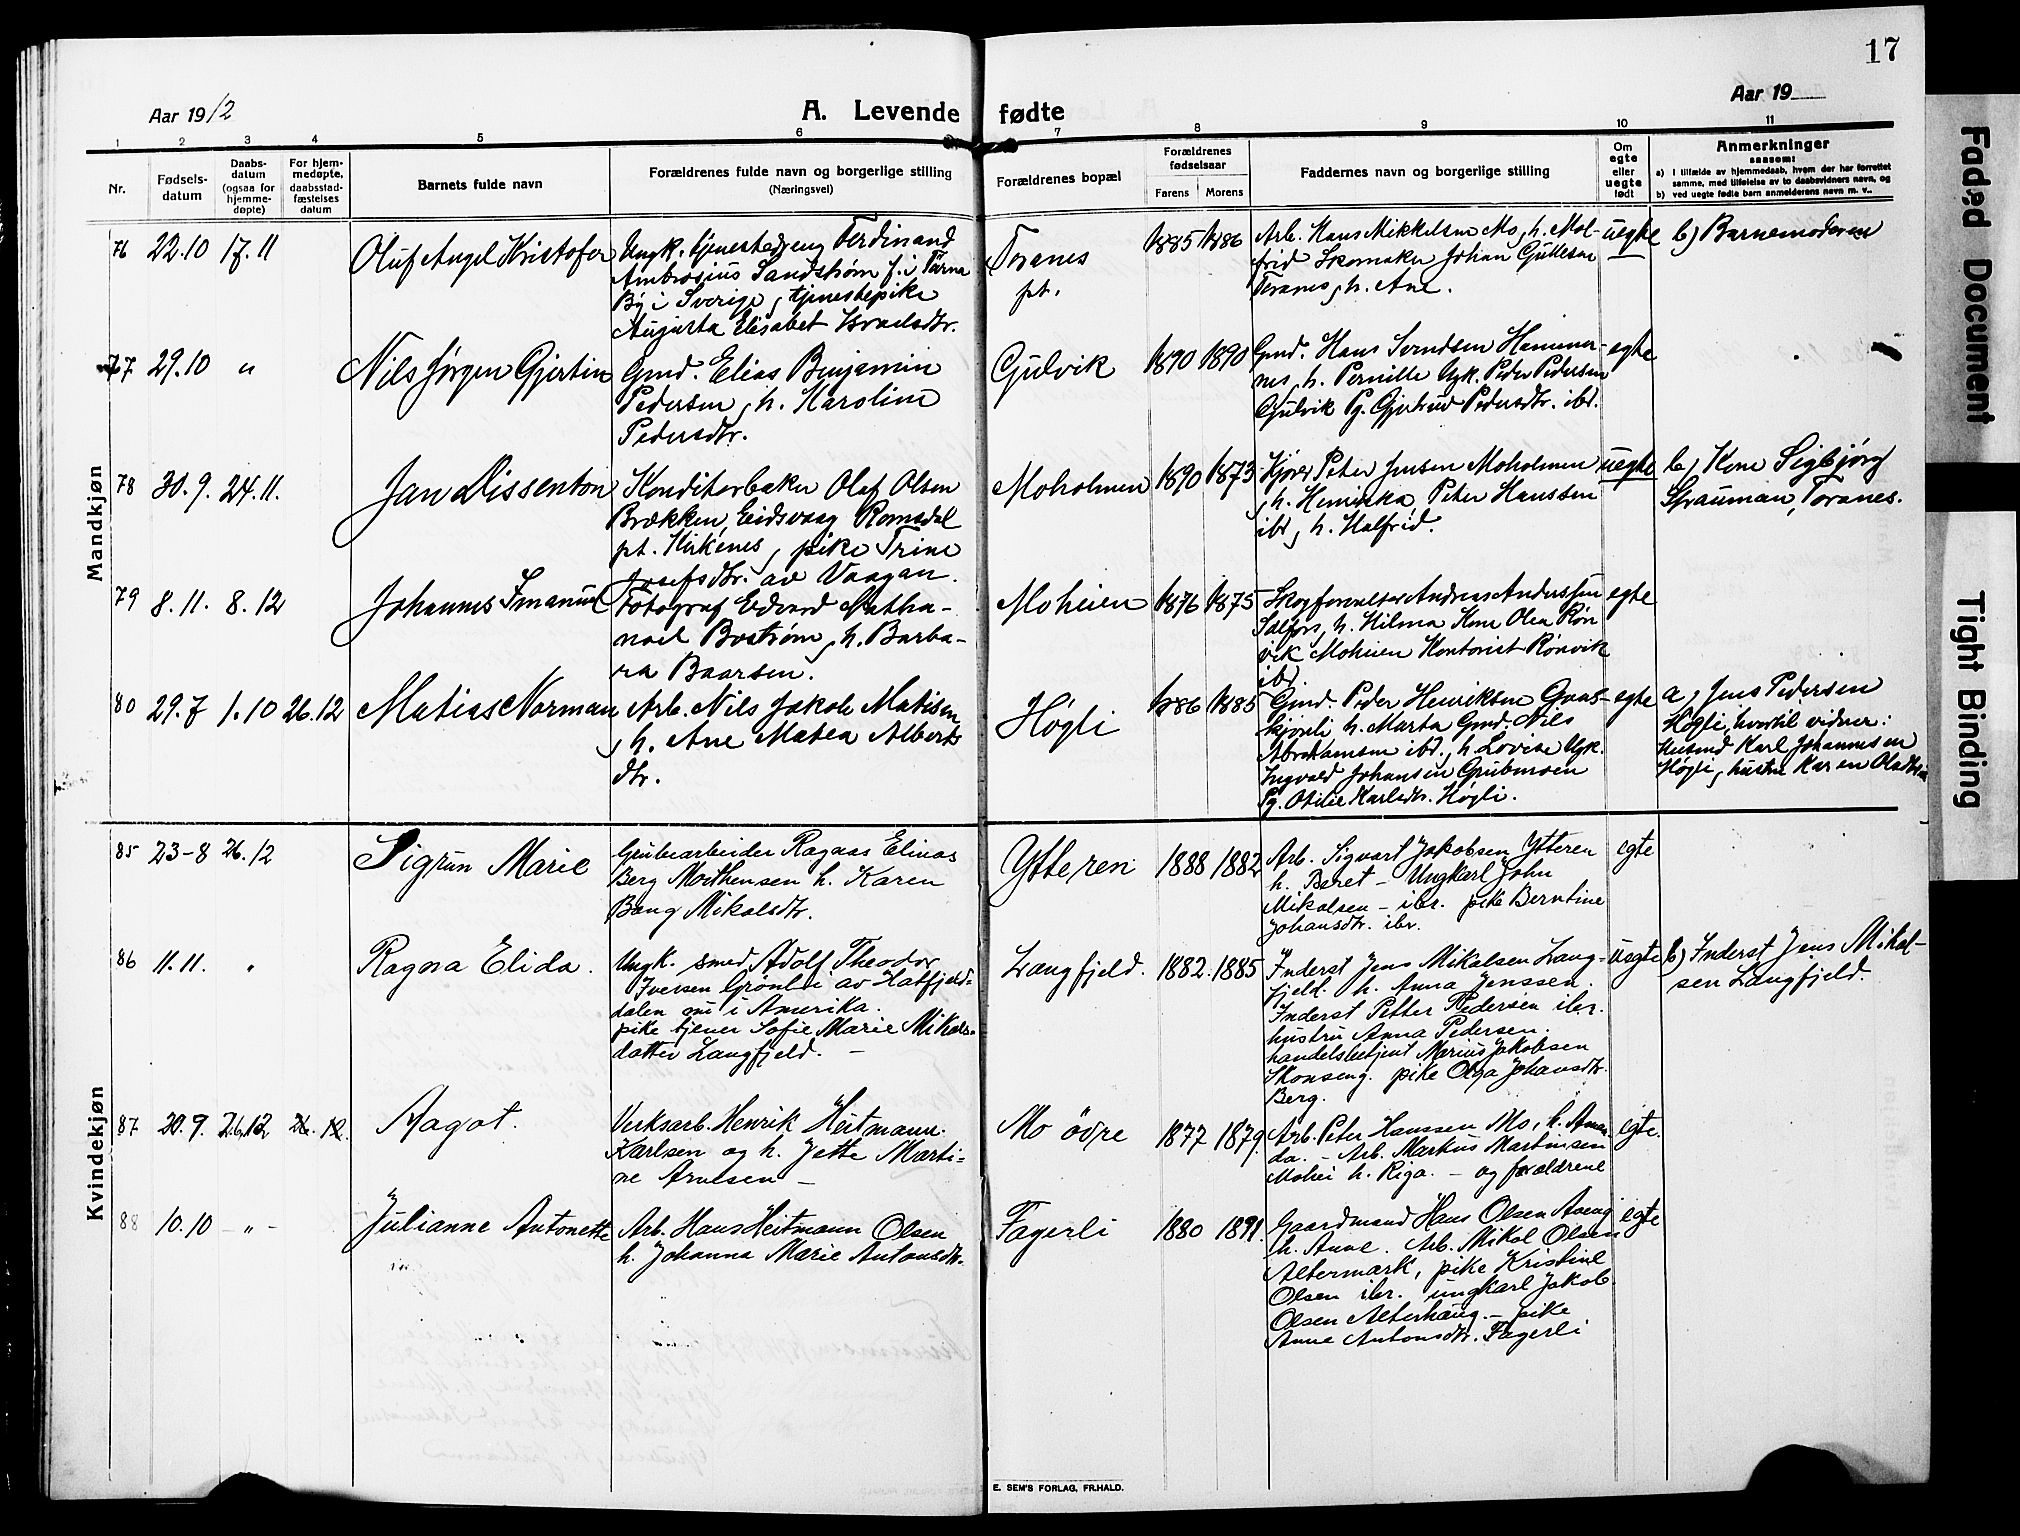 17
Aar 1912
A. Levende fødte
Aar 19
1 2 3 4 5 6 7 8 9 10 11
Nr.
Fødsels-
datum
Daabs-
datum
(ogsaa for
hjemme-
døpte)
For hjem-
medøpte,
daabsstad-
fæstelses
datum
Barnets fulde navn
Forældrenes fulde navn og borgerlige stilling
(Næringsvei)
Forældrenes bopæl
Forældrenes
fødselsaar
Farens Morens
Faddernes navn og borgerlige stilling
Om
egte
eller
uegte
født
Anmerkninger
saasom:
a) I tilfælde av hjemmedaab, hvem der har forrettet
samme, med tilføielse av to daabsvidners navn, og
b) ved uegte fødte barn anmelderens navn m. v..
Mandkjøn
76 22.10 17.11
Oluf Angel Kristofer
Ungk. tjenestedreng Ferdinand
Ambrosius Sandstrøm f. i Tärna
By i Sverige, tjenestepike
Augusta Elisabet Israelsdtr.
Toranes
pt.
1885 1886
Arb. Hans Mikkelsen Mo, h. Mal-
frid Skomaker Johan Gullesen
Toranes, h. Ane.
uegte
b) Barnemoderen
77 29.10 "
Nils Jørgen Gjertin
Gmd. Elias Benjamin
Pedersen, h. Karoline
Pedersdtr.
Gulvik
1890 1890
Gmd. Hans Svendsen Hammer-
nes, h. Pernille Ugk. Peder Pedersen
Gulvik Pg. Gjertrud Pedersdtr. ibd.
egte
78 30.9. 24.11.
Jan Dissenton
Konditorbaker Olaf Olsen
Brækken, Eidsvaag Romsdal
pt. Kirkenes, pike Trine
Josefsdtr. av Vaagan.
Moholmen
1890 1873
Kjører Peter Jensen Moholmen
, h. Henrikka, Peter Hanssen
ibd, h. Halfrid.
uegte
b, Kone Sigbjørg
Strauman, Toranes.
79 8.11. 8.12
Johannes Imanuel
Fotograf Edvard Natha-
nael Boström, h. Barba-
ra Baarsen.
Moheien
1876 1875
Skogforvalter Andreas Anderssen
Salfors, h. Hilma Kone Olea Røn
vik Moheien Kontorist Rönvik
ibd.
egte
80 29.7 1.10 26.12
Matias Norman
Arb. Nils Jakob Matisen
, h. Ane Matea Alberts
dtr.
Høgli
1886 1885
Gmd. Peder Henriksen Graas-
kjønli, h. Marta Gmd. Nils
Abrahamsen ibd., h. Lovise Ugk.
Ingvald Johansen Grubmoen
Pg. Otilie Karlsdtr. Høgli.
egte
a, Jens Pedersen
Høgli, hvortil vidner:
Husmd Karl Johannesen
Høgli, hustru Karen Olsdtr
Kvindekjøn
85 23-8 26.12
Sigrun Marie
Grubearbeider Ragaas Elinas
Berg Morthensen h. Karen
Bang Mikalsdtr.
Ytteren
1888 1882
Arb. Sigvart Jakobsen Ytteren
h. Beret - Ungkarl John
Mikalsen - ibr. pike Berntine
Johansdtr. ibr.
egte
86 11.11. "
Ragna Elida.
Ungk. smed Adolf Theodor
Iversen Grønli av Hatfjeld-
dalen nu i Amerika.
pike tjener Sofie Marie Mikals-
datter Langfjeld. -
Langfjeld.
1882. 1885
Inderst Jens Mikalsen Lang-
fjeld. h. Anna Jenssen.
Inderst Petter Pedersen ibr.
hustru Anna Pedersen.
handelsbetjent Marius Jakobsen
Skonseng. pike Olga Johansdtr.
Berg.
uegte
b) Inderst Jens Mikal-
sen Langfjeld.
87 20.9. 26.12 26.12.
Aagot.
Verksarb. Henrik Heitmann
Karlsen og h. Jette Marti-
ne Arnesen -
Mo övre
1877 1879.
Arb. Peter Hanssen Mo, h. Aman
da. - Arb. Markus Martinsen
Mohei h. Riga. - og forældrene
egte.
88 10.10 - " -
Julianne Antonette
Arb. Hans Heitmann Olsen
h. Johanna Marie Antonsdtr.
Fagerli
1880 1891.
Gaardmand Hans Olsen Aaeng
h. Anne. Arb. Mikal Olsen
Altermark, pike Kristine
Olsen ibr. ungkarl Jakob
Olsen Alterhaug. - pike
Anne Antonsdtr. Fagerli
egte
E. SEM'S FORLAG, FR.HALD.
Faded Document
Tight Binding